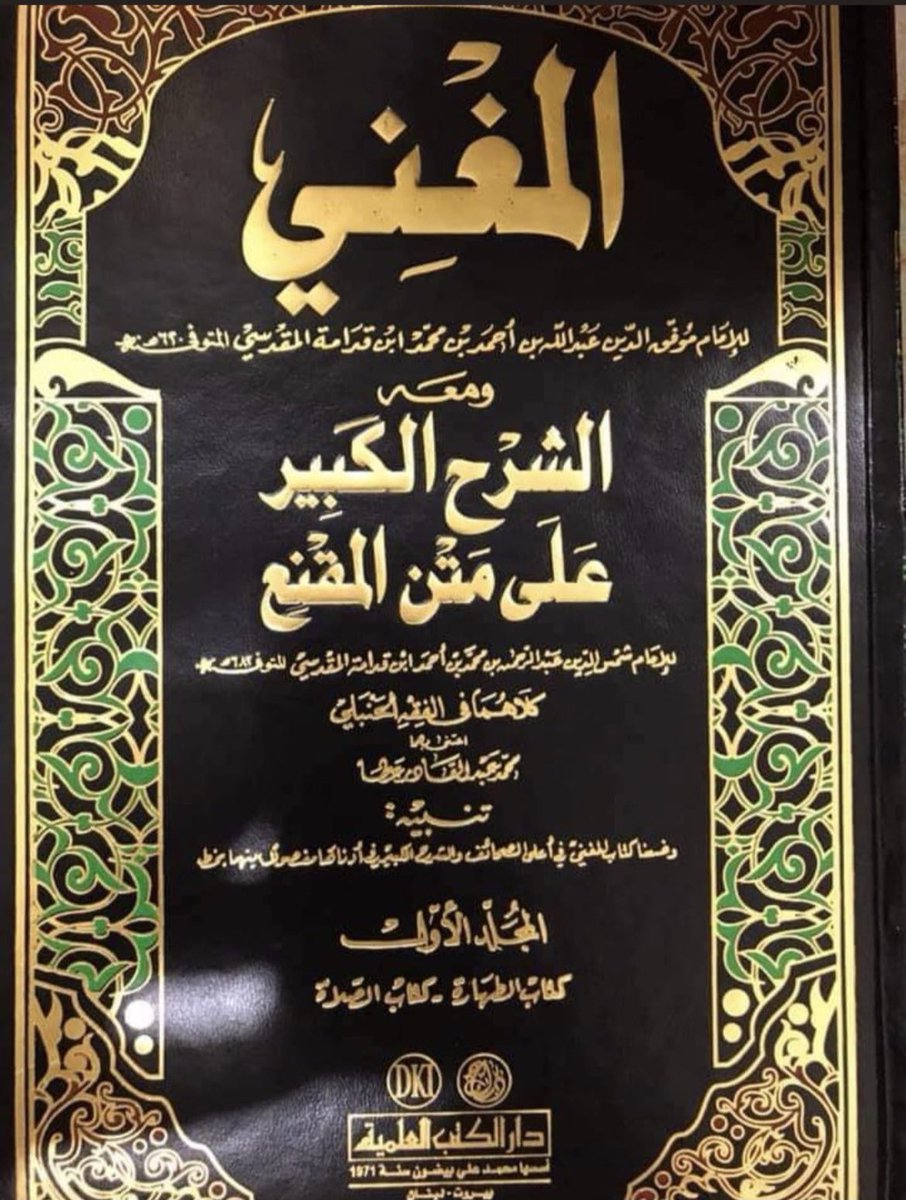 المغني
للإمام موفق الدين عبد الله بن أحمد بن محمد ابن قدامة المقدسي المتوفى ٦٢٠ هـ
ومعه
الشرح الكبير
على متن المقنع
للإمام شمس الدين عبد الرحمن بن محمد بن أحمد ابن قدامة المقدسي المتوفى ٦٨٢ هـ
كلاهما في الفقه الحنبلي
اعتنى بهما
محمد عبد القادر عطا
تنبيه:
وضعنا كتاب المغني في أعلى الصحائف والشرح الكبير في أدناها مفصولاً بينهما بخط
المجلد الأول
كتاب الطهارة - كتاب الصلاة
DKI
دار الكتب العلمية
أسسها محمد علي بيضون سنة 1971
بيروت - لبنان